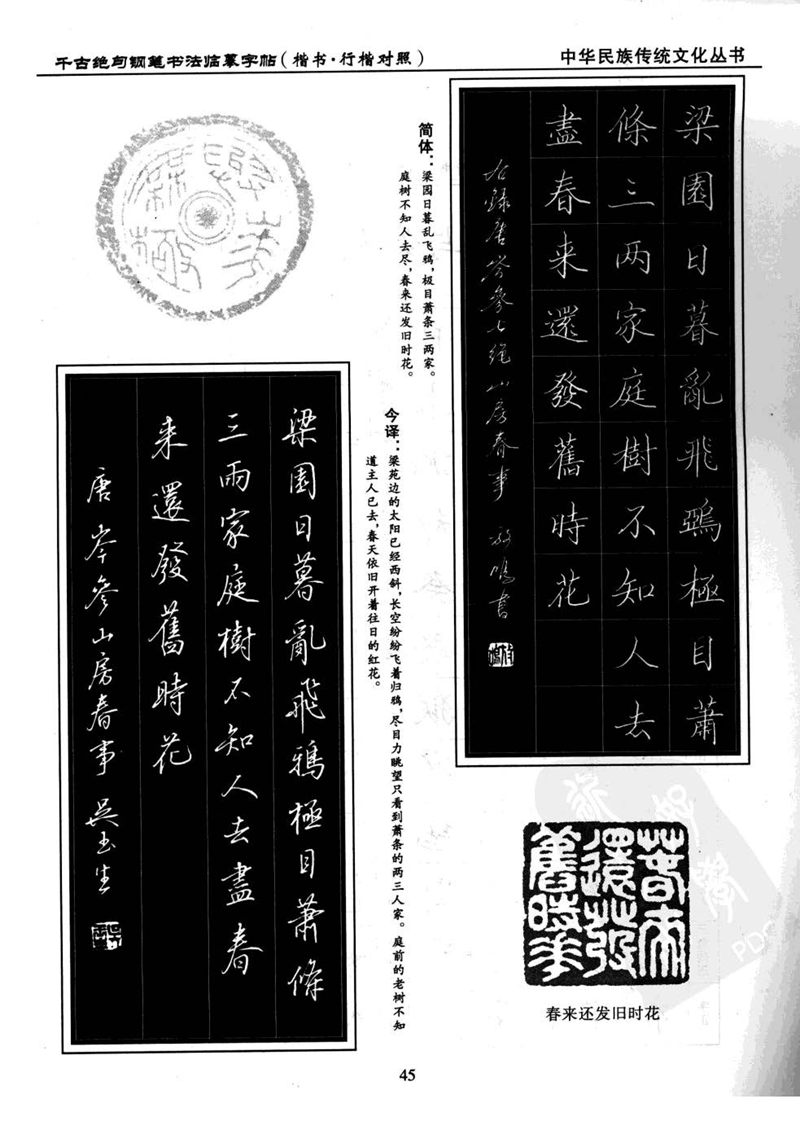 千古绝句钢笔书法临摹字帖(楷书·行楷对照)
中华民族传统文化丛书
梁園日暮亂飛鴉極目蕭
條三两家庭樹不知人去
盡春来還發舊時花
右錄唐岑參七绝山房春事 書
简体：梁园日暮乱飞鸦，极目萧条三两家。
庭树不知人去尽，春来还发旧时花。
今译：梁苑边的太阳已经西斜，长空纷纷飞着归鸦，尽目力眺望只看到萧条的两三人家。庭前的老树不知
道主人已去，春天依旧开着往日的红花。
梁園日暮亂飛鴉極目蕭條
三兩家庭樹不知人去盡春
来還發舊時花
唐岑參山房春事 吴玉生
春来
還發
舊時花
春来还发旧时花
45